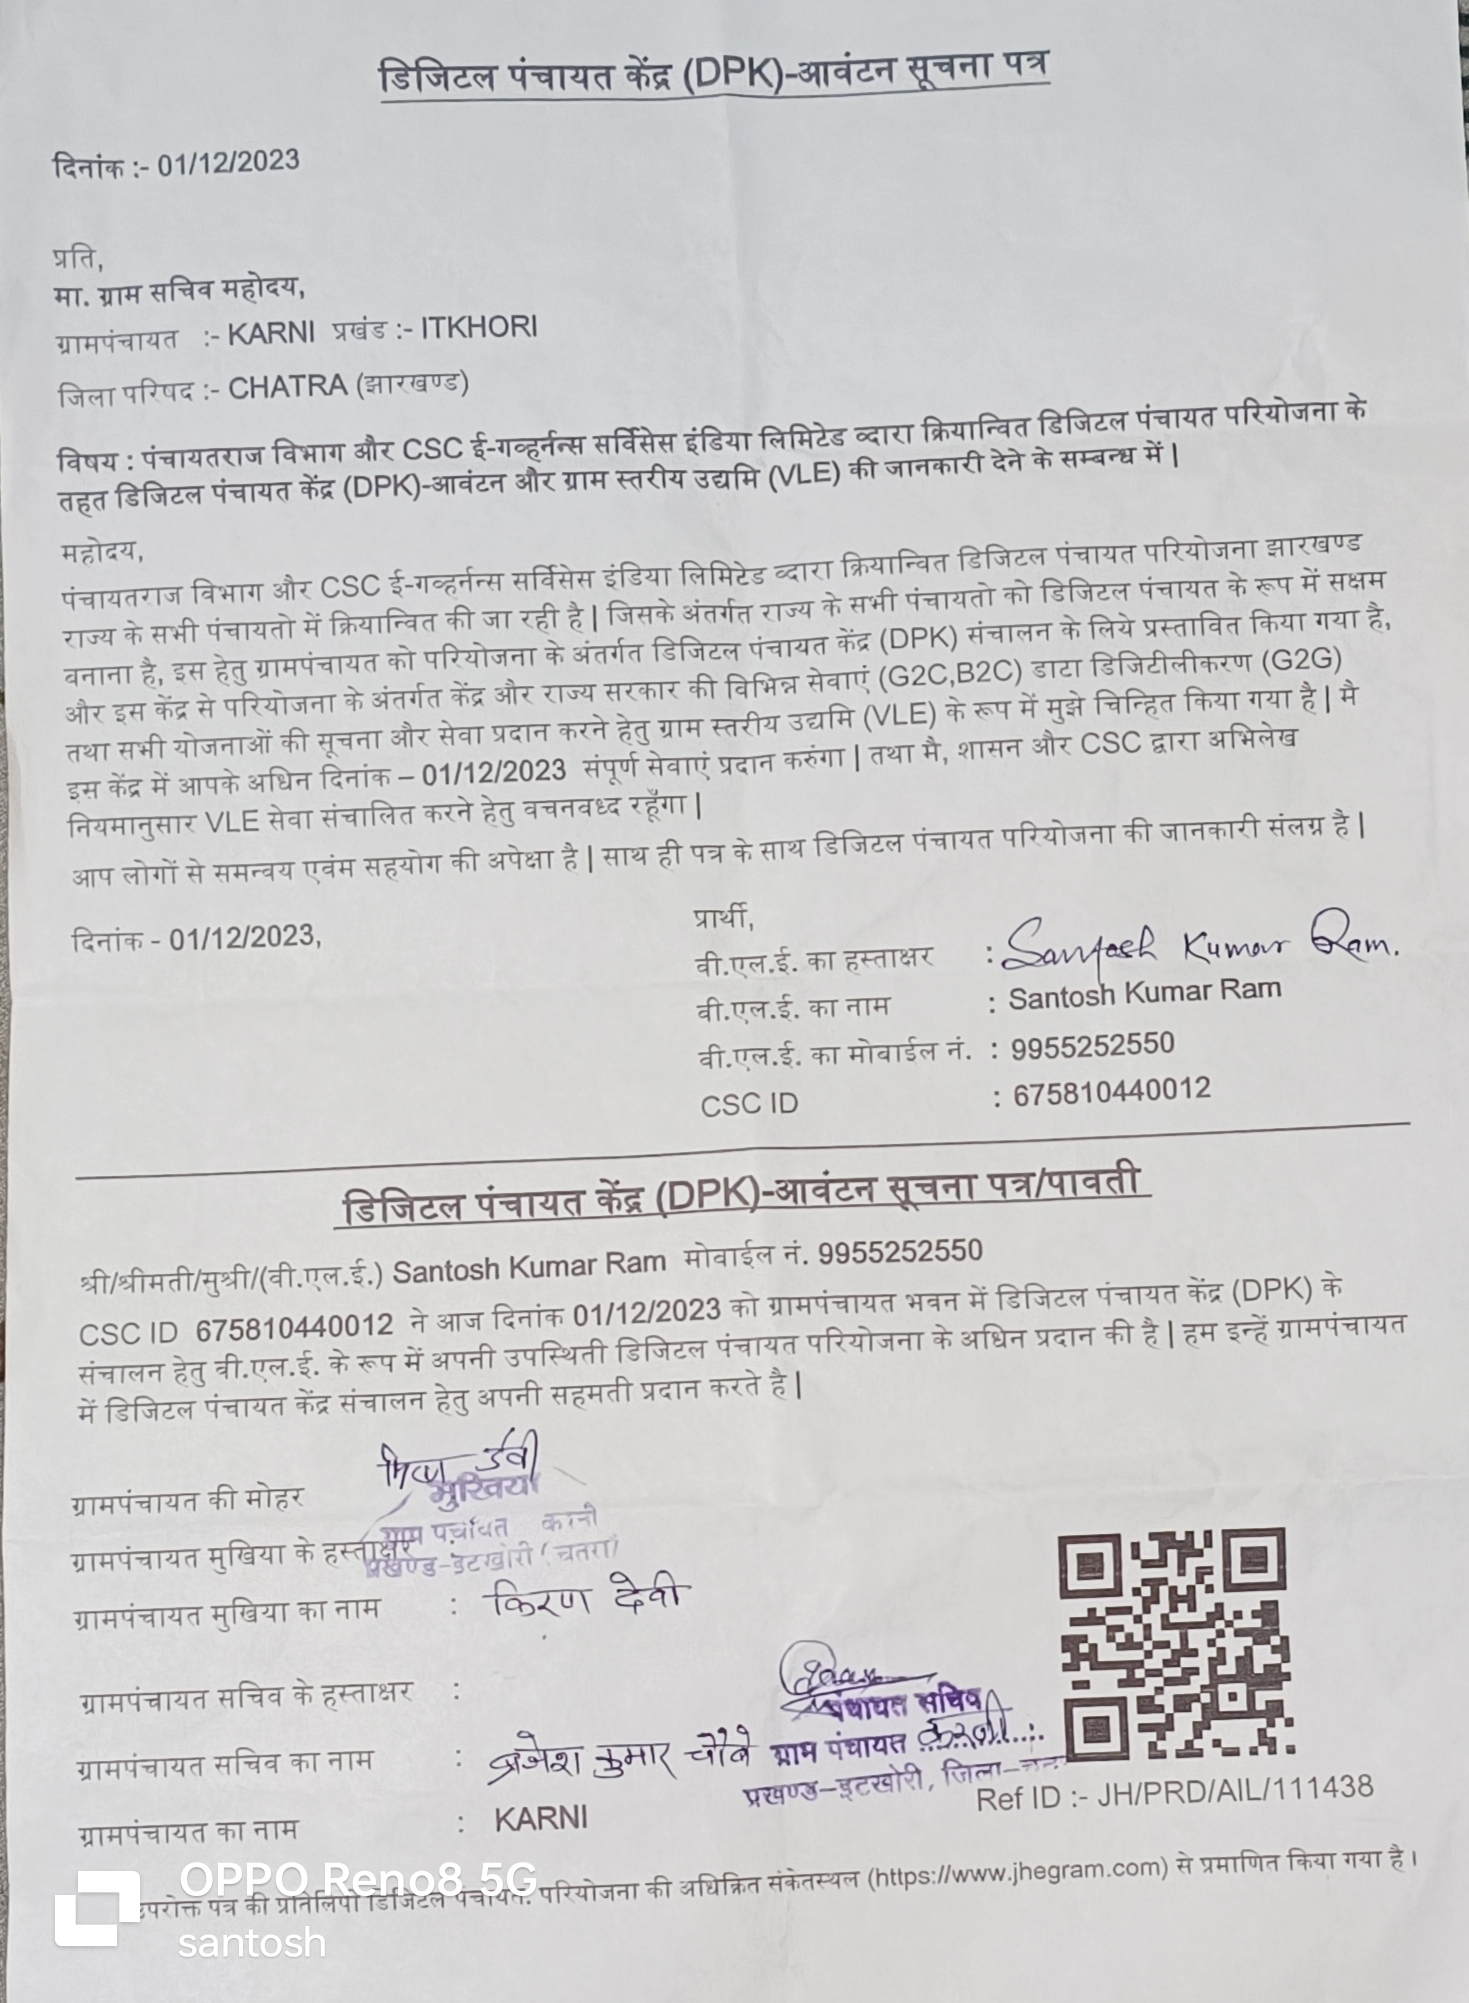 डिजिटल पंचायत केंद्र (DPK)-आवंटन सूचना पत्र
दिनांक :- 01/12/2023
प्रति,
मा. ग्राम सचिव महोदय,
ग्रामपंचायत :- KARNI प्रखंड :- ITKHORI
जिला परिषद :- CHATRA (झारखण्ड)
विषय : पंचायतराज विभाग और CSC ई-गव्हर्नन्स सर्विसेस इंडिया लिमिटेड व्दारा क्रियान्वित डिजिटल पंचायत परियोजना के
तहत डिजिटल पंचायत केंद्र (DPK)-आवंटन और ग्राम स्तरीय उद्यमि (VLE) की जानकारी देने के सम्बन्ध में |
महोदय,
पंचायतराज विभाग और CSC ई-गव्हर्नन्स सर्विसेस इंडिया लिमिटेड व्दारा क्रियान्वित डिजिटल पंचायत परियोजना झारखण्ड
राज्य के सभी पंचायतो में क्रियान्वित की जा रही है | जिसके अंतर्गत राज्य के सभी पंचायतो को डिजिटल पंचायत के रूप में सक्षम
बनाना है, इस हेतु ग्रामपंचायत को परियोजना के अंतर्गत डिजिटल पंचायत केंद्र (DPK) संचालन के लिये प्रस्तावित किया गया है,
और इस केंद्र से परियोजना के अंतर्गत केंद्र और राज्य सरकार की विभिन्न सेवाएं (G2C,B2C) डाटा डिजिटीलीकरण (G2G)
तथा सभी योजनाओं की सूचना और सेवा प्रदान करने हेतु ग्राम स्तरीय उद्यमि (VLE) के रूप में मुझे चिन्हित किया गया है | मै
इस केंद्र में आपके अधिन दिनांक – 01/12/2023 संपूर्ण सेवाएं प्रदान करुंगा | तथा मै, शासन और CSC द्वारा अभिलेख
नियमानुसार VLE सेवा संचालित करने हेतु वचनवध्द रहूँगा |
आप लोगों से समन्वय एवंम सहयोग की अपेक्षा है | साथ ही पत्र के साथ डिजिटल पंचायत परियोजना की जानकारी संलग्न है |
दिनांक - 01/12/2023,
प्रार्थी,
वी.एल.ई. का हस्ताक्षर : Santosh Kumar Ram.
वी.एल.ई. का नाम : Santosh Kumar Ram
वी.एल.ई. का मोवाईल नं. : 9955252550
CSC ID : 675810440012
डिजिटल पंचायत केंद्र (DPK)-आवंटन सूचना पत्र/पावती
श्री/श्रीमती/सुश्री/(वी.एल.ई.) Santosh Kumar Ram मोवाईल नं. 9955252550
CSC ID 675810440012 ने आज दिनांक 01/12/2023 को ग्रामपंचायत भवन में डिजिटल पंचायत केंद्र (DPK) के
संचालन हेतु वी.एल.ई. के रूप में अपनी उपस्थिती डिजिटल पंचायत परियोजना के अधिन प्रदान की है | हम इन्हें ग्रामपंचायत
में डिजिटल पंचायत केंद्र संचालन हेतु अपनी सहमती प्रदान करते है |
ग्रामपंचायत की मोहर
मुखिया
ग्राम पंचायत करनी
ग्रामपंचायत मुखिया के हस्ताक्षर
प्रखण्ड-इटखोरी (चतरा)
ग्रामपंचायत मुखिया का नाम : किरण देवी
ग्रामपंचायत सचिव के हस्ताक्षर :
पंचायत सचिव
ग्रामपंचायत सचिव का नाम : ब्रजेश कुमार चौबे
ग्राम पंचायत करनी
प्रखण्ड-इटखोरी, जिला-
Ref ID :- JH/PRD/AIL/111438
ग्रामपंचायत का नाम : KARNI
उपरोक्त पत्र की प्रतिलिपी डिजिटल पंचायत परियोजना की अधिक्रित संकेतस्थल (https://www.jhegram.com) से प्रमाणित किया गया है |
OPPO Reno8 5G
santosh